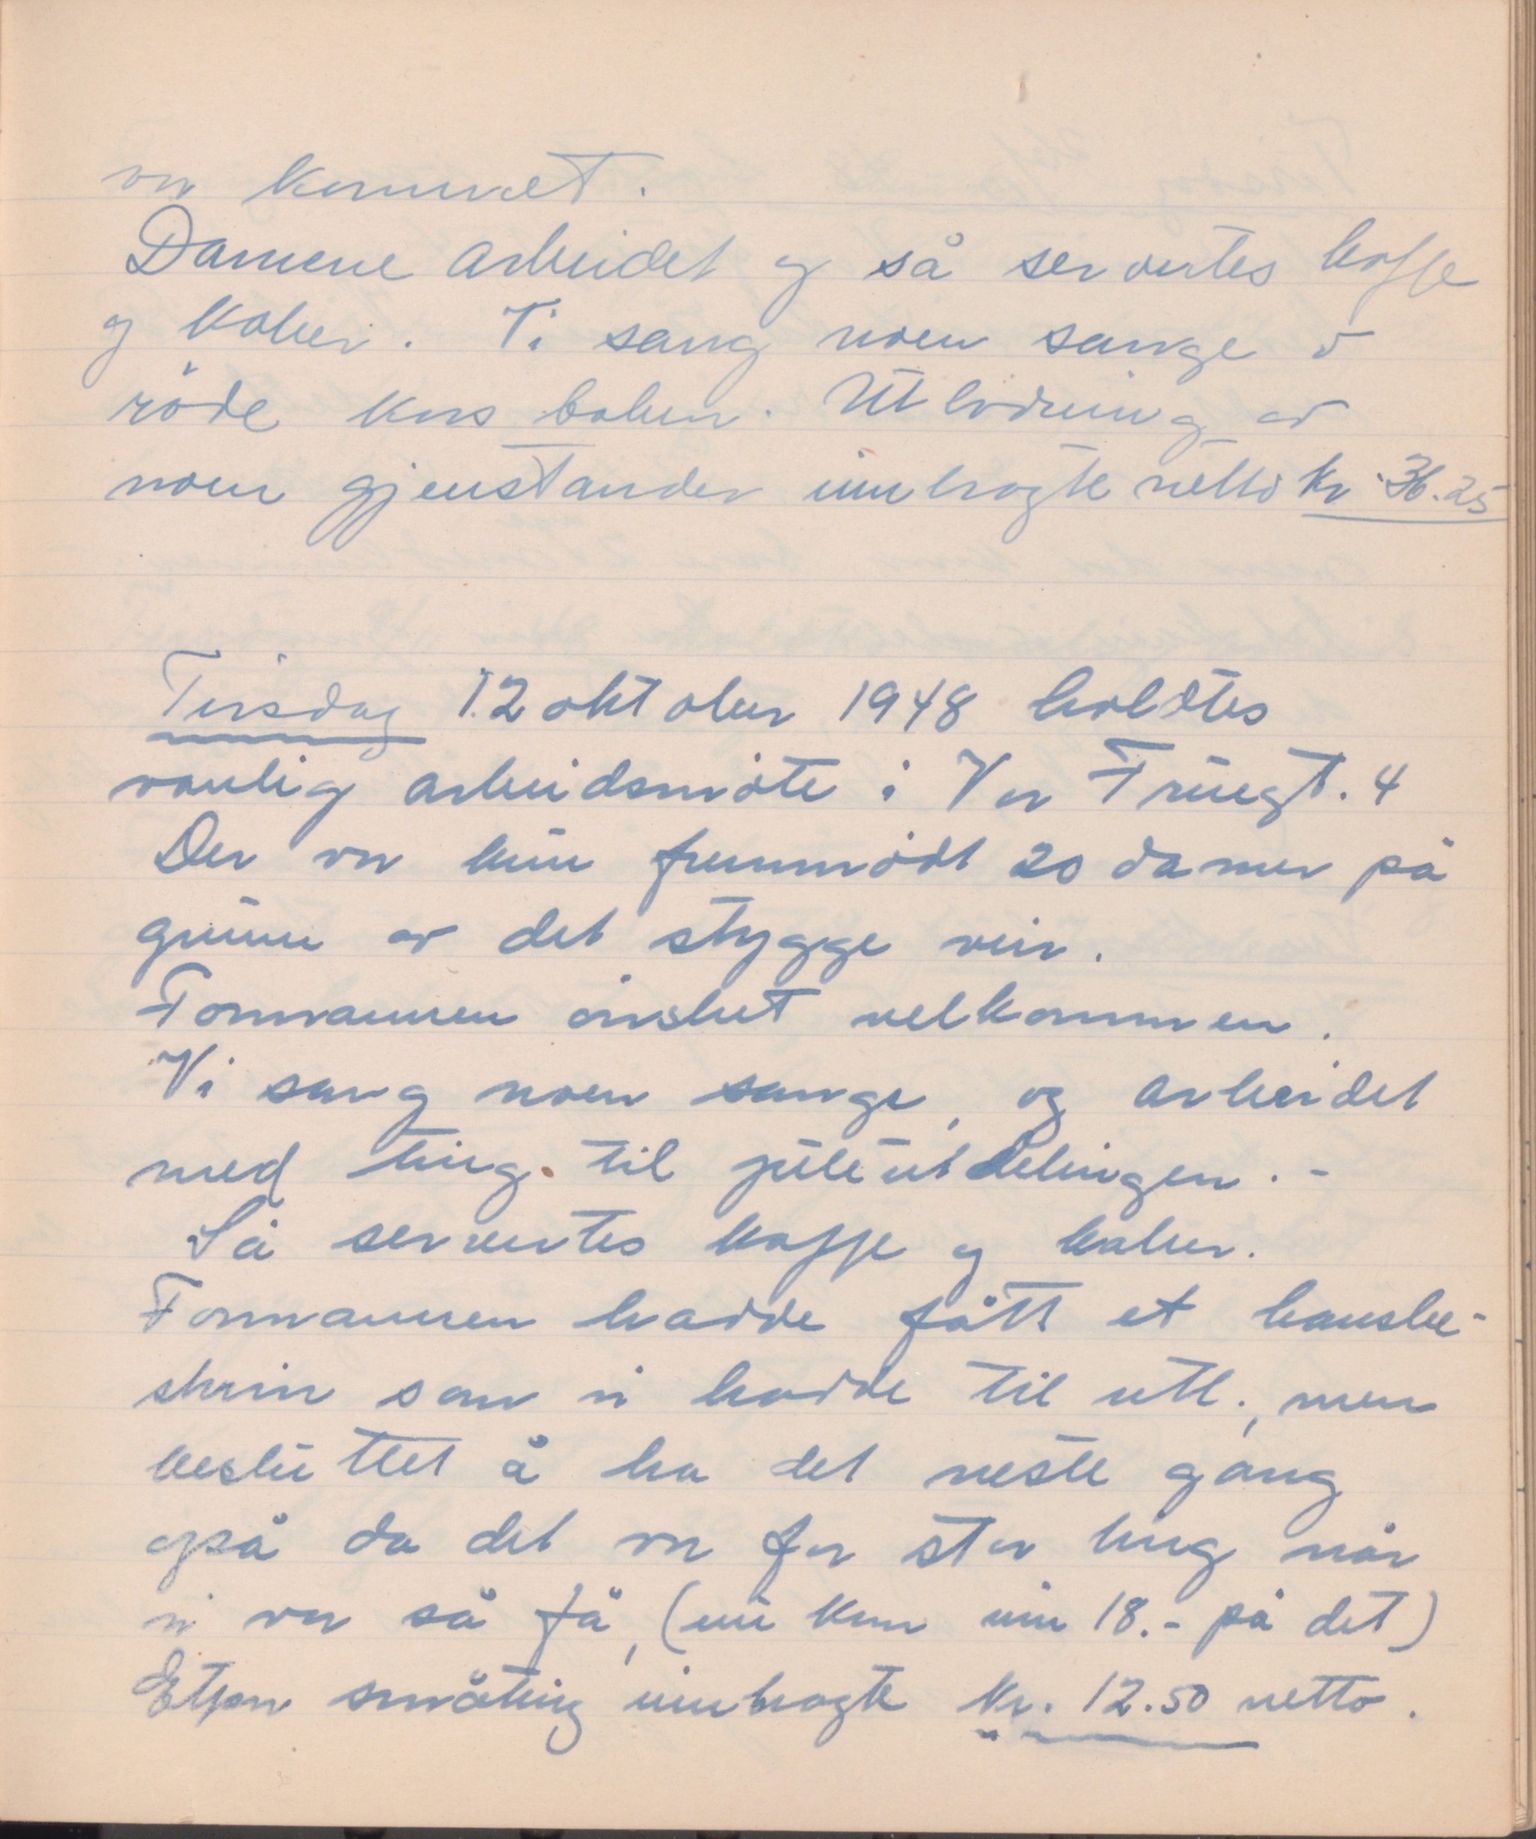 var kommet.
Damene arbeidet og så servertes kaffe
og kaker. Vi sang noen sange av
røde kors boken. Utlodning av
noen gjenstander innbragte netto kr. 36.25
Tirsdag 12 oktober 1948 holdtes
vanlig arbeidsmøte i Vor Fruegt. 4
Der var kun fremmødt 20 damer på
grunn av det stygge veir.
Formannen ønsket velkommen.
Vi sang noen sange, og arbeidet
med ting til juleutdelingen. -
Så servertes kaffe og kaker.
Formannen hadde fått et hanske-
skrin som vi hadde til utl., men
besluttet å ha det neste gang
også da det var for stor ting når
vi var så få, (nu kom inn 18.- på det)
Etpar småting innbragte kr. 12.50 netto.